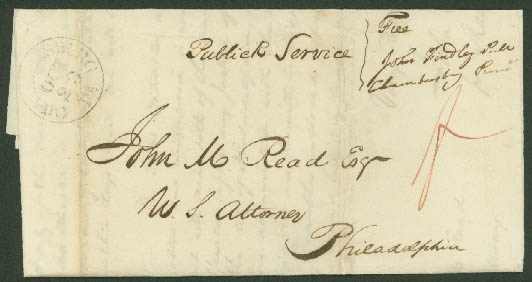 CHAMBERSBURG PA
OCT
25
Publick Service
Free
John Findley P.M.
Chambersburg Penn
John M Read Esq
U. S. Attorney
Philadelphia